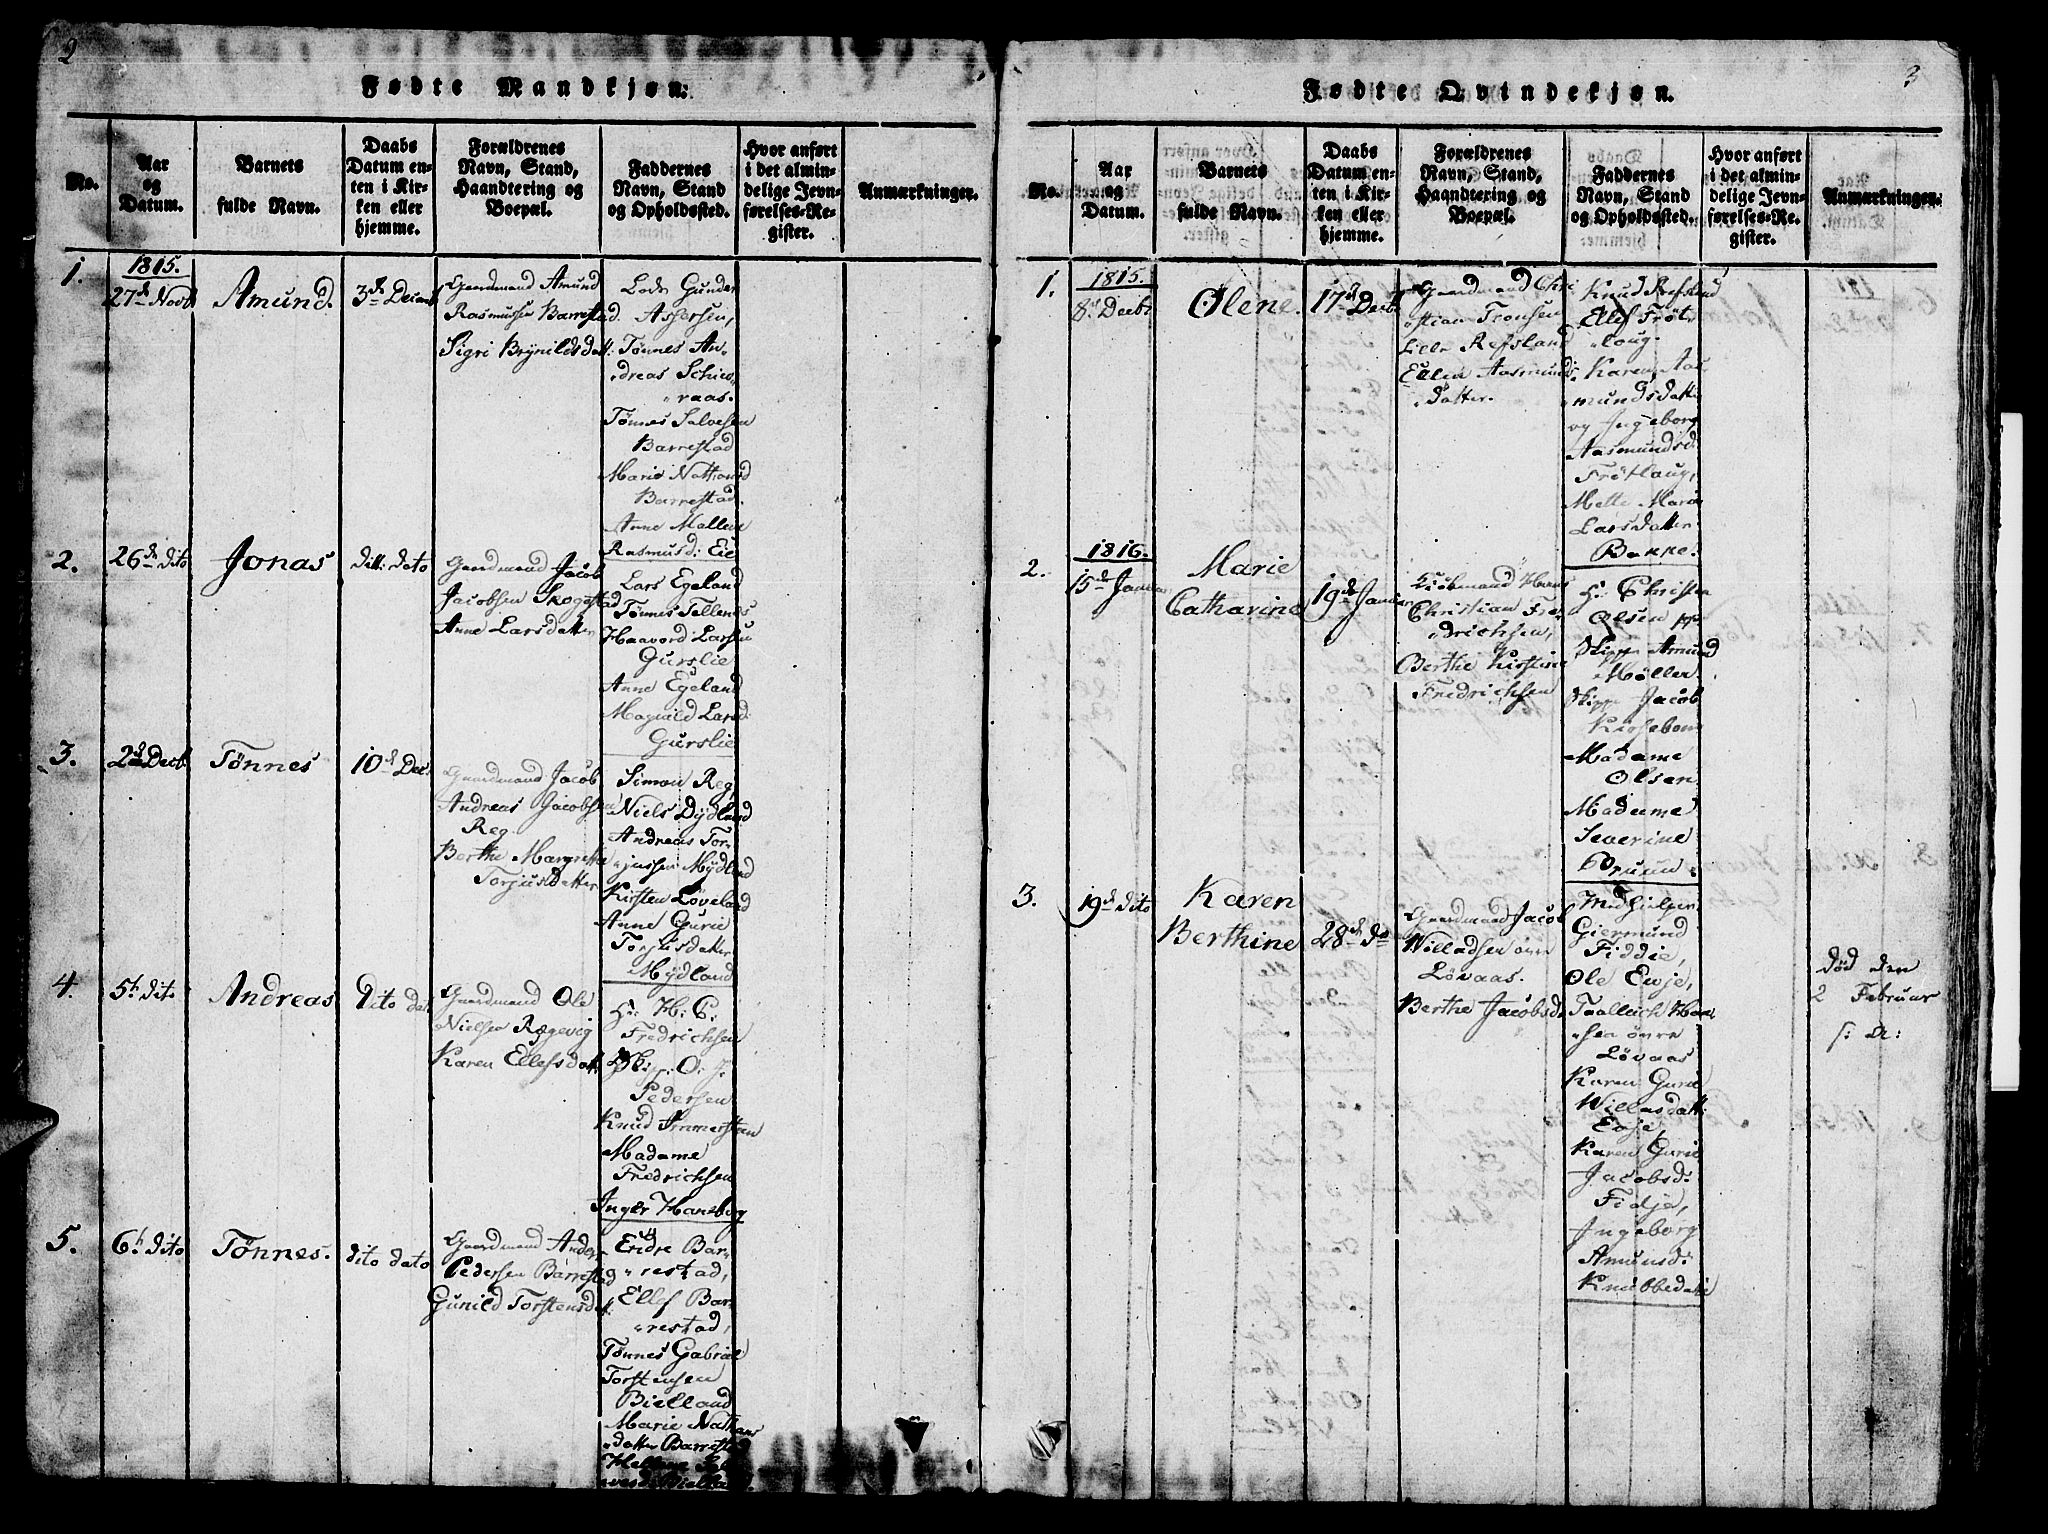 2
Fødte Mandkjøn.
No.
Aar
og
Datum.
Barnets
fulde Navn.
Daabs
Datum en-
ten i Kir-
ken eller
hjemme.
Forældrenes
Navn, Stand,
Haandtering og
Boepæl.
Faddernes
Navn, Stand
og Opholdssted.
Hvor anført
i det almin-
delige Jevn-
førelses-Re-
gister.
Anmærkninger.
1.
1815.
27de Novb
Amund.
3de Decemb
Gaardmand Amund
Rasmussen Barrestad.
Sigri Brynildsdatt:
Lods Gunder
Assersen,
Tønnes An-
dreas Schive-
raas.
Tønnes Salvesen
Barrestad
Marie Nathansd
Barrestad.
Anne Mallene
Rasmusd: Eie
2.
26de dito
Jonas
dito dato
Gaardmand Jacob
Jacobsen Skogestad
Anne Larsdatter
Lars Egeland
Tønnes Tellenes
Haavord Larsen
Gurslie
Anne Egeland
Magnild Larsd:
Gurslie
3.
2de Decb.
Tønnes
10de Dec:
Gaardmand Jacob
Andreas Jacobsen
Reg.
Berthe Margrethe
Torjusdatter
Simon Reg,
Niels Dydland
Andreas Tor-
jussen Mydland
Kirsten Løveland
Anne Gurie
Torjusdatter
Mydland
4.
5te dito
Andreas
dito dato
Gaardmand Ole
Nielsen Rægevig
Karen Ellefsdatt:
Hr: H: C:
Fredrichsen
Skipp: O: J.
Pedersen
Knud Immerstan
Madame
Fredrichsen
Inger Haneborg
5.
6te dito
Tønnes.
dito dato
Gaardmand Anders
Pedersen Barrestad
Gunild Torstensdatt.
Endre Bar-
restad,
Ellef Bar-
restad,
Tønnes Gabriel
Torstensen
Bielland
Marie Nathans
datter Barrestad
3
Fødte Qvindekjøn.
No.
Aar
og
Datum.
Barnets
fulde Navn.
Daabs
Datum en-
ten i Kir-
ken eller
hjemme.
Forældrenes
Navn, Stand,
Haandtering og
Boepæl.
Faddernes
Navn, Stand
og Opholdssted.
Hvor anført
i det almin-
delige Jevn-
førelses-Re-
gister.
Anmærkninger.
1.
1815.
8de Decbr
Olene.
17de Decbr
Gaardmand Chri
stian Tronsen
Lille Refsland
Ellen Aasmunds-
datter.
Knud Refsland
Ellef Frøt-
loug.
Karen Aas-
mundsdatter
og Ingeborg
Aasmundsd
Frøtlaug,
Mette Marie
Larsdatter
Bakke.
2.
1816.
15de Januar
Marie
Catharine
19de Januar
Kiøbmand Hans
Christian Fre-
drichsen,
Berthe Kirstine
Fredrichsen
Hr: Christen
Olsen
Skipp: Amund
Møller
Skipp: Jacob
Kisseboe
Madame
Olsen
Madame
Severine
3.
19de dito
Karen
Berthine
28de do
Gaardmand Jacob
Willadsen øvre
Løvaas.
Berthe Jacobsd.
Medhielper
Giermund
Fiddie,
Ole Evje,
Taallich Han-
sen øvre
Løvaas
Karen Gurie
Willasdatt:
Evje,
Karen Gurie
Jacobsd:
Fidje,
Ingeborg
Amunsd:
Knubbedalie
død den
2 Februar
s: A: